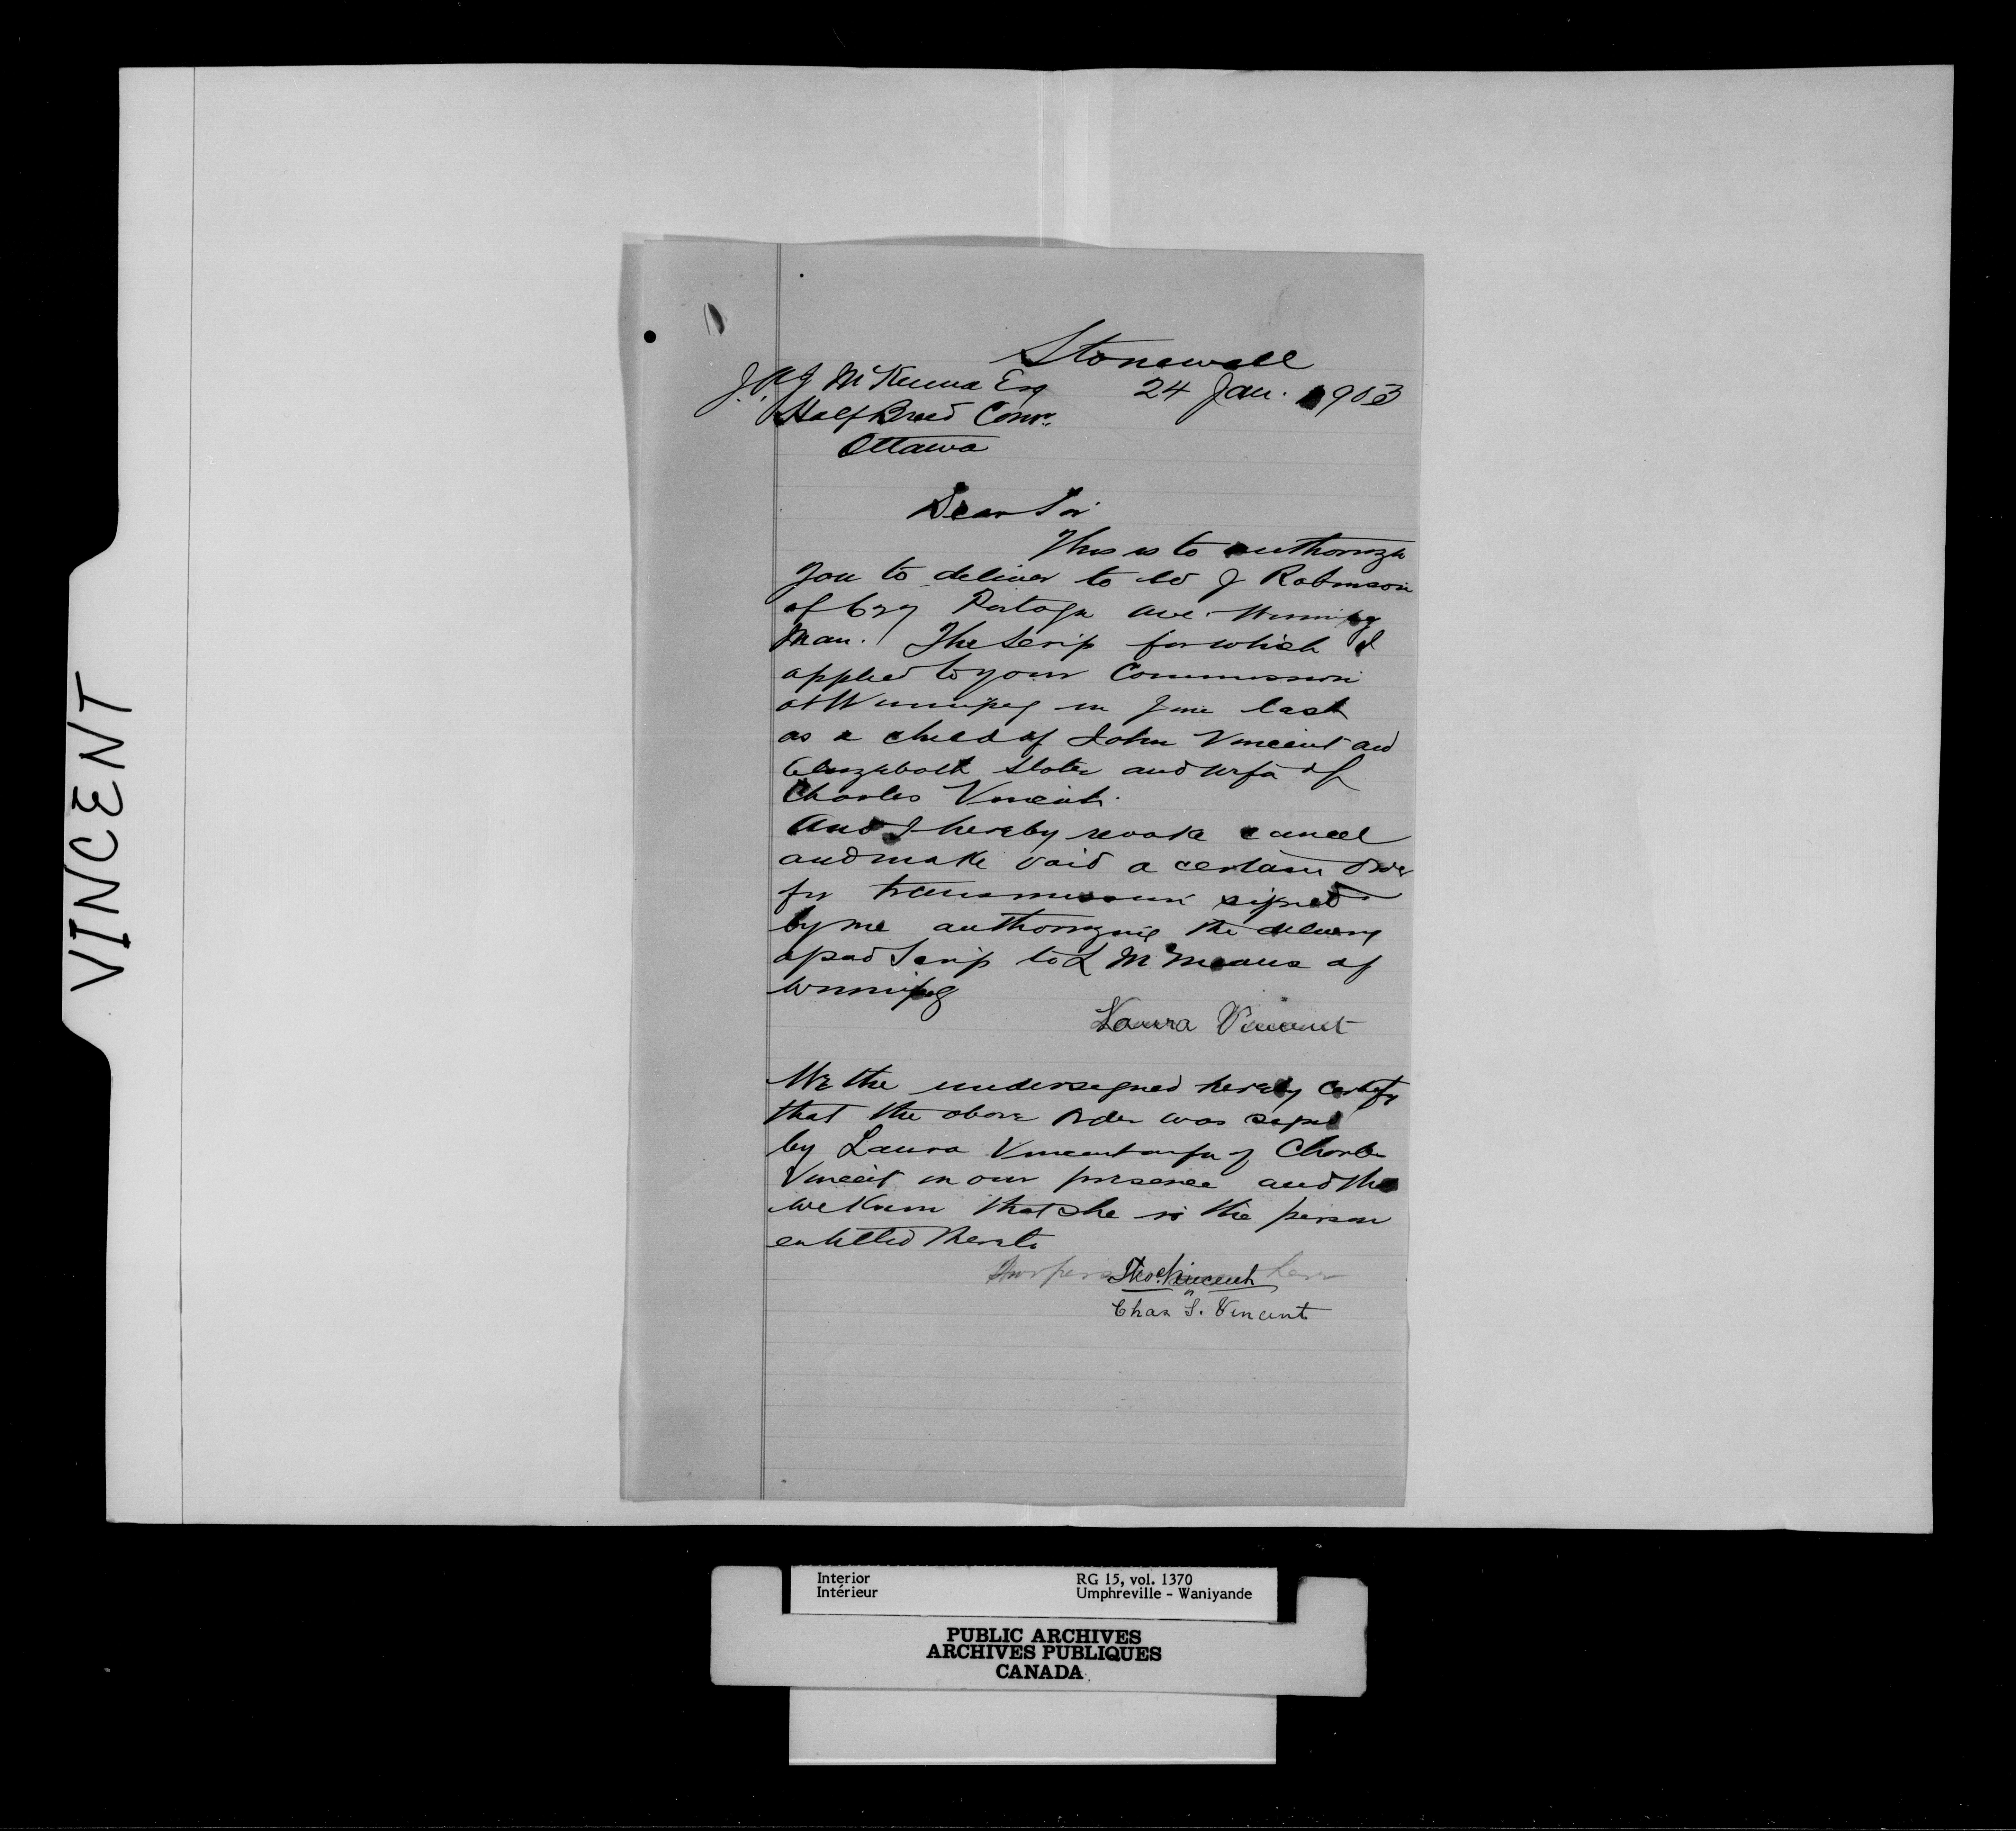 VINCENT
Stonewall
J.A.J McKenna Esq 24 Jan. 1903
Half Breed Comr.
Ottawa
Dear Sir
This is to authorize
you to deliver to W J Robinson
of Portage ave. Winnipeg
Man. The Scrip for which I
applied to your Commission
at Winnipeg in June last
as a child of John Vincent and
Elizabeth and wife of
Charles Vincent.
And I hereby revoke cancel
and make void a certain order
for transmission signed
by me authorizing the delivery
of said Scrip to L M of
Winnipeg
Laura Vincent
We the undersigned hereby certify
that the above order was signed
by Laura Vincent wife of Charles
Vincent in our presence and that
we know that she is the person
entitled thereto
Thos Vincent
Chas S. Vincent
Interior RG 15, vol. 1370
Intérieur Umphreville - Waniyande
PUBLIC ARCHIVES
ARCHIVES PUBLIQUES
CANADA